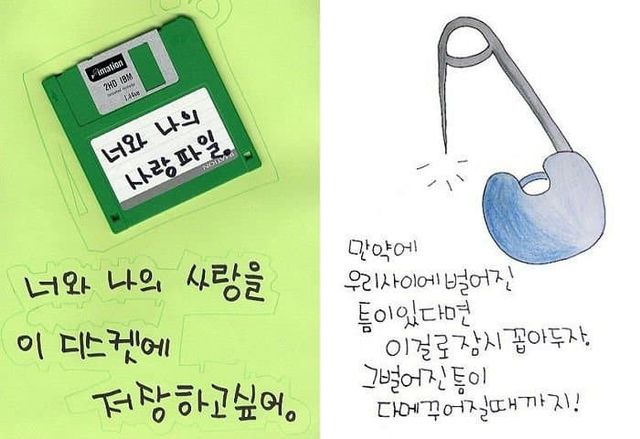 imation
2HD IBM
1.44MB
너와 나의
사랑파일.
imation
너와 나의 사랑을
이 디스켓에
저장하고싶어.
만약에
우리사이에 벌어진
틈이있다면
이걸로 잠시 꼽아두자.
그벌어진 틈이
다메꾸어질때까지!